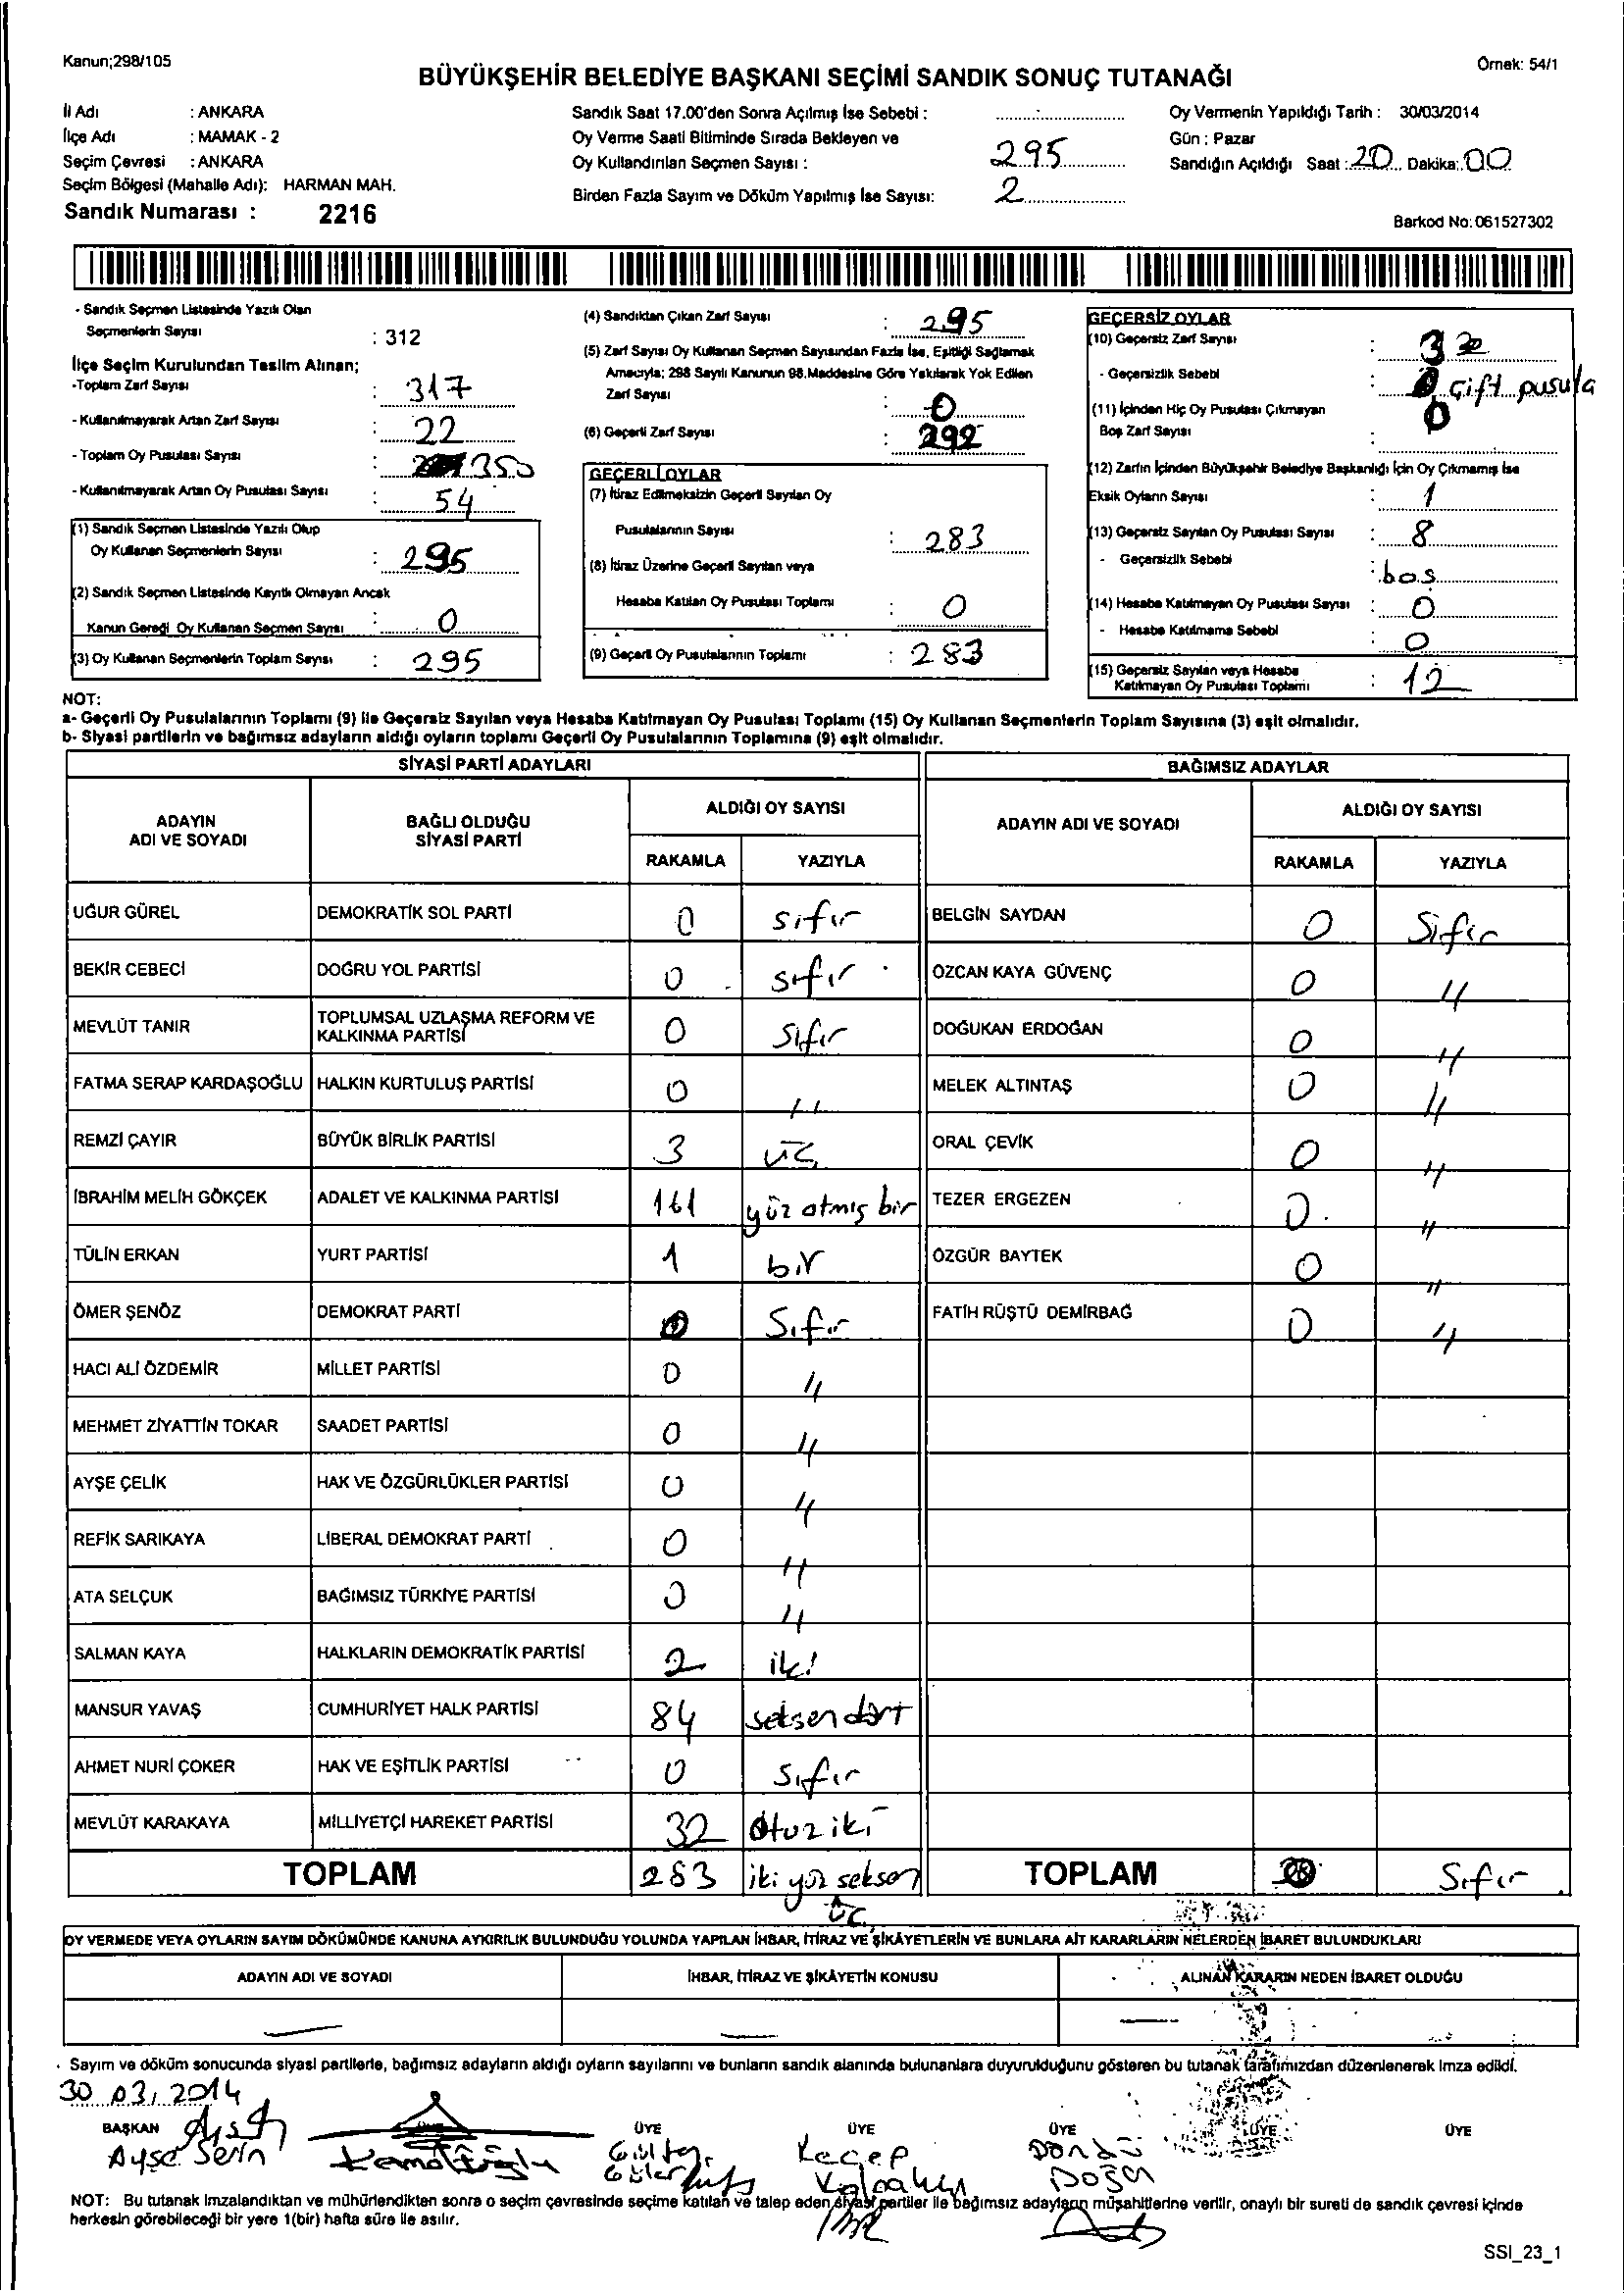 Kanun;298/105
Örnek: 54/1
BÜYÜKŞEHİR BELEDİYE BAŞKANI SEÇİMİ SANDIK SONUÇ TUTANAĞI
İl Adı : ANKARA
İlçe Adı : MAMAK - 2
Seçim Çevresi : ANKARA
Seçim Bölgesi (Mahalle Adı): HARMAN MAH.
Sandık Numarası : 2216
Sandık Saat 17.00'den Sonra Açılmış İse Sebebi :
Oy Verme Saati Bitiminde Sırada Bekleyen ve
Oy Kullandırılan Seçmen Sayısı : 295
Birden Fazla Sayım ve Döküm Yapılmış İse Sayısı: 2
Oy Vermenin Yapıldığı Tarih : 30/03/2014
Gün : Pazar
Sandığın Açıldığı Saat : 20 Dakika: 00
Barkod No: 061527302
- Sandık Seçmen Listesinde Yazılı Olan
Seçmenlerin Sayısı : 312
İlçe Seçim Kurulundan Teslim Alınan;
-Toplam Zarf Sayısı : 317
- Kullanılmayarak Artan Zarf Sayısı : 22
- Toplam Oy Pusulası Sayısı : 350
- Kullanılmayarak Artan Oy Pusulası Sayısı : 54
(1) Sandık Seçmen Listesinde Yazılı Olup
Oy Kullanan Seçmenlerin Sayısı : 295
(2) Sandık Seçmen Listesinde Kayıtlı Olmayan Ancak
Kanun Gereği Oy Kullanan Seçmen Sayısı : 0
(3) Oy Kullanan Seçmenlerin Toplam Sayısı : 295
(4) Sandıktan Çıkan Zarf Sayısı : 295
(5) Zarf Sayısı Oy Kullanan Seçmen Sayısından Fazla İse, Eşitliği Sağlamak
Amacıyla; 298 Sayılı Kanunun 98.Maddesine Göre Yakılarak Yok Edilen
Zarf Sayısı : 0
(6) Geçerli Zarf Sayısı : 292
GEÇERLİ OYLAR
(7) İtiraz Edilmeksizin Geçerli Sayılan Oy
Pusulalarının Sayısı : 283
(8) İtiraz Üzerine Geçerli Sayılan veya
Hesaba Katılan Oy Pusulası Toplamı : 0
(9) Geçerli Oy Pusulalarının Toplamı : 283
GEÇERSİZ OYLAR
(10) Geçersiz Zarf Sayısı : 3
- Geçersizlik Sebebi : çift pusula
(11) İçinden Hiç Oy Pusulası Çıkmayan
Boş Zarf Sayısı : 0
(12) Zarfın İçinden Büyükşehir Belediye Başkanlığı İçin Oy Çıkmamış İse
Eksik Oyların Sayısı : 1
(13) Geçersiz Sayılan Oy Pusulası Sayısı : 8
- Geçersizlik Sebebi : boş
(14) Hesaba Katılmayan Oy Pusulası Sayısı : 0
- Hesaba Katılmama Sebebi : 0
(15) Geçersiz Sayılan veya Hesaba
Katılmayan Oy Pusulası Toplamı : 12
NOT:
a- Geçerli Oy Pusulalarının Toplamı (9) ile Geçersiz Sayılan veya Hesaba Katılmayan Oy Pusulası Toplamı (15) Oy Kullanan Seçmenlerin Toplam Sayısına (3) eşit olmalıdır.
b- Siyasi partilerin ve bağımsız adayların aldığı oyların toplamı Geçerli Oy Pusulalarının Toplamına (9) eşit olmalıdır.
SİYASİ PARTİ ADAYLARI
ADAYIN ADI VE SOYADI
BAĞLI OLDUĞU SİYASİ PARTİ
ALDIĞI OY SAYISI
RAKAMLA YAZIYLA
UĞUR GÜREL DEMOKRATİK SOL PARTİ 0 sıfır
BEKİR CEBECİ DOĞRU YOL PARTİSİ 0 sıfır
MEVLÜT TANIR TOPLUMSAL UZLAŞMA REFORM VE KALKINMA PARTİSİ 0 sıfır
FATMA SERAP KARDAŞOĞLU HALKIN KURTULUŞ PARTİSİ 0 "
REMZİ ÇAYIR BÜYÜK BİRLİK PARTİSİ 3 üç
İBRAHİM MELİH GÖKÇEK ADALET VE KALKINMA PARTİSİ 161 yüz atmış bir
TÜLİN ERKAN YURT PARTİSİ 1 bir
ÖMER ŞENÖZ DEMOKRAT PARTİ 0 Sıfır
HACI ALİ ÖZDEMİR MİLLET PARTİSİ 0 "
MEHMET ZİYATTİN TOKAR SAADET PARTİSİ 0 "
AYŞE ÇELİK HAK VE ÖZGÜRLÜKLER PARTİSİ 0 "
REFİK SARIKAYA LİBERAL DEMOKRAT PARTİ 0 "
ATA SELÇUK BAĞIMSIZ TÜRKİYE PARTİSİ 0 "
SALMAN KAYA HALKLARIN DEMOKRATİK PARTİSİ 2 iki
MANSUR YAVAŞ CUMHURİYET HALK PARTİSİ 84 seksen dört
AHMET NURİ ÇOKER HAK VE EŞİTLİK PARTİSİ 0 Sıfır
MEVLÜT KARAKAYA MİLLİYETÇİ HAREKET PARTİSİ 32 Otuz iki
TOPLAM 283 iki yüz seksen üç
BAĞIMSIZ ADAYLAR
ADAYIN ADI VE SOYADI
ALDIĞI OY SAYISI
RAKAMLA YAZIYLA
BELGİN SAYDAN 0 Sıfır
ÖZCAN KAYA GÜVENÇ 0 "
DOĞUKAN ERDOĞAN 0 "
MELEK ALTINTAŞ 0 "
ORAL ÇEVİK 0 "
TEZER ERGEZEN 0 "
ÖZGÜR BAYTEK 0 "
FATİH RÜŞTÜ DEMİRBAĞ 0 "
TOPLAM Sıfır
OY VERMEDE VEYA OYLARIN SAYIM DÖKÜMÜNDE KANUNA AYKIRILIK BULUNDUĞU YOLUNDA YAPILAN İHBAR, İTİRAZ VE ŞİKÂYETLERİN VE BUNLARA AİT KARARLARIN NELERDEN İBARET BULUNDUKLARI
ADAYIN ADI VE SOYADI İHBAR, İTİRAZ VE ŞİKÂYETİN KONUSU ALINAN KARARIN NEDEN İBARET OLDUĞU
Sayım ve döküm sonucunda siyasi partilerle, bağımsız adayların aldığı oyların sayılarını ve bunların sandık alanında bulunanlara duyurulduğunu gösteren bu tutanak tarafımızdan düzenlenerek imza edildi.
30.03.2014
BAŞKAN ÜYE ÜYE ÜYE ÜYE ÜYE ÜYE
Ayşe Serin
Recep
Döndü
Doğan
NOT: Bu tutanak imzalandıktan ve mühürlendikten sonra o seçim çevresinde seçime katılan ve talep eden siyasi partiler ile bağımsız adayların müşahitlerine verilir, onaylı bir sureti de sandık çevresi içinde
herkesin görebileceği bir yere 1(bir) hafta süre ile asılır.
SSI_23_1